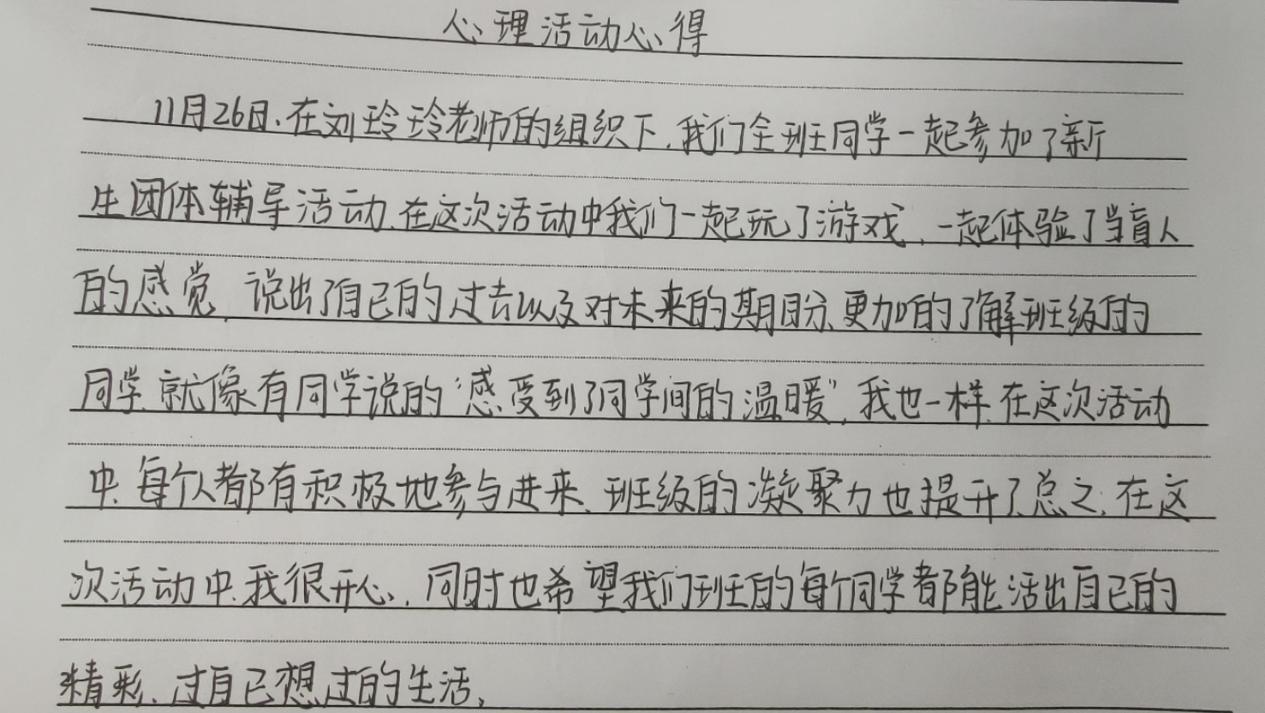 心理活动心得
11月26日、在刘玲玲老师的组织下、我们全班同学一起参加了新
生团体辅导活动、在这次活动中我们一起玩了游戏、一起体验了当盲人
的感觉、说出了自己的过去以及对未来的期盼、更加的了解班级的
同学、就像有同学说的“感受到了同学间的温暖”、我也一样、在这次活动
中、每个人都有积极地参与进来、班级的凝聚力也提升了、总之、在这
次活动中、我很开心、同时也希望我们班的每个同学都能活出自己的
精彩、过自己想过的生活、